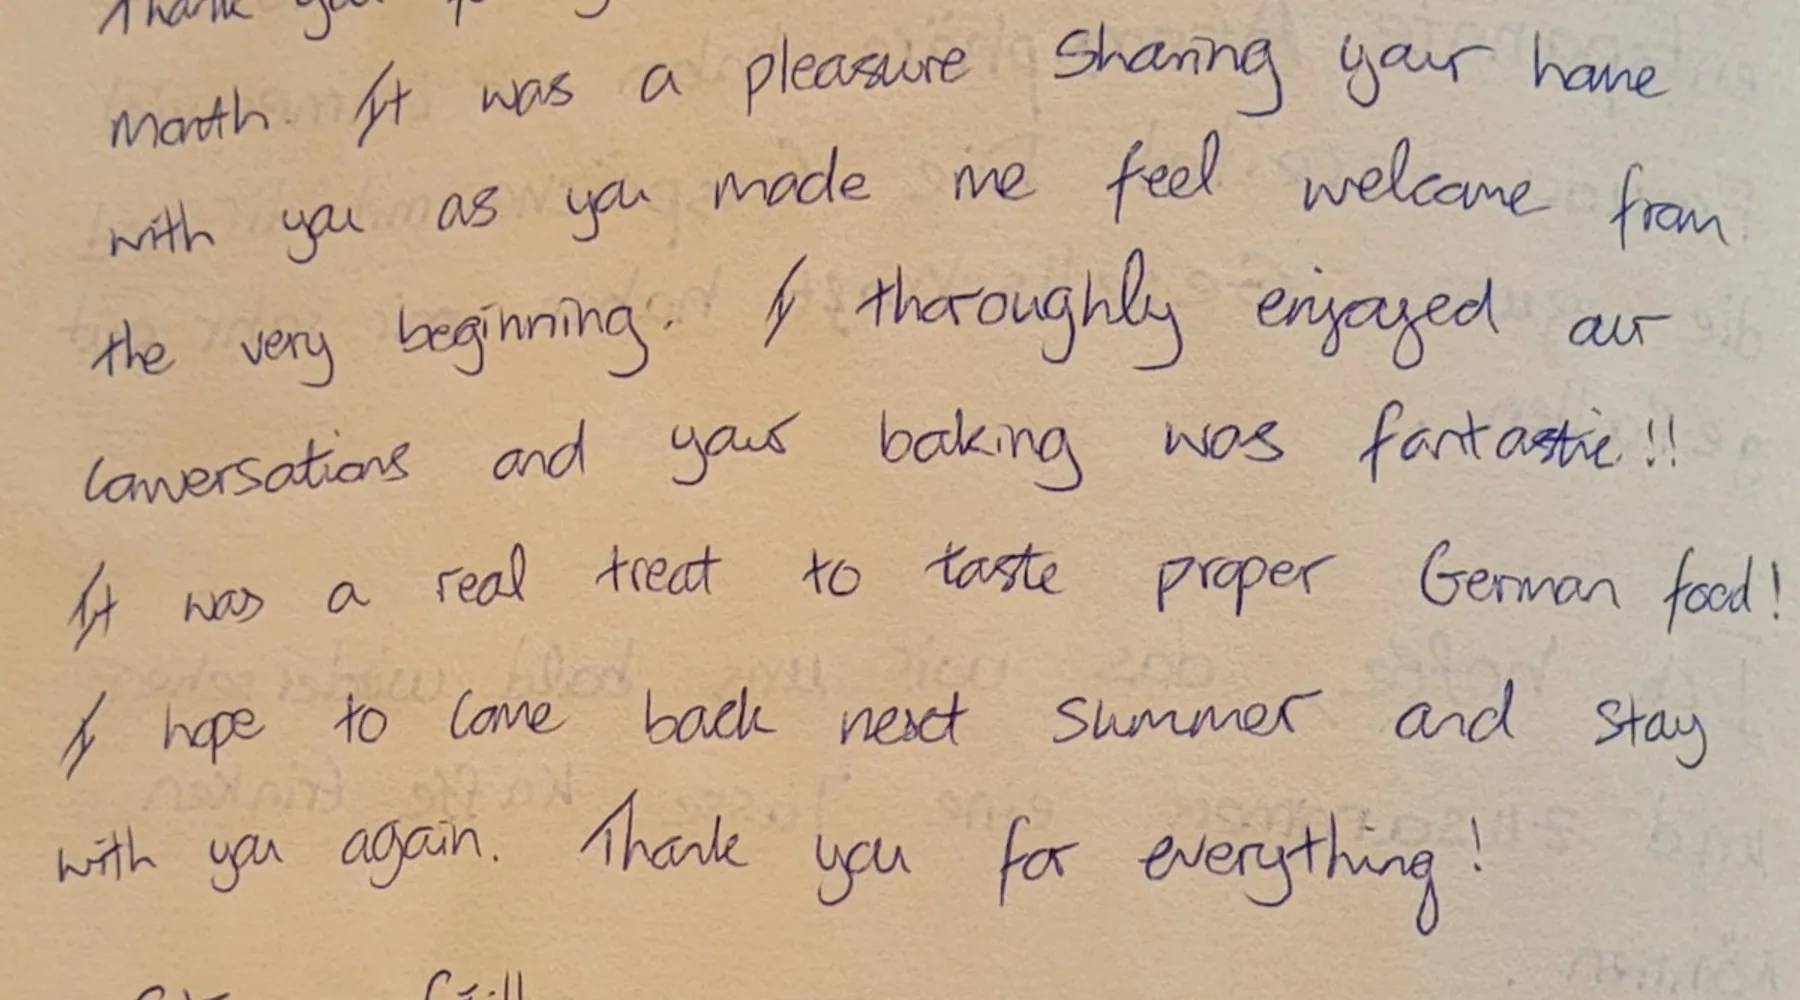 Thank you
month. It was a pleasure sharing your home
with you as you made me feel welcome from
the very beginning. I thoroughly enjoyed our
conversations and your baking was fantastic!!
It was a real treat to taste proper German food!
I hope to come back next summer and stay
with you again. Thank you for everything!